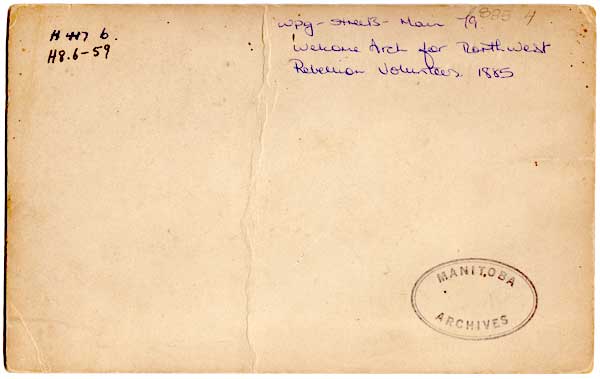 H 447 b.
H8.6-59
Wpg - Streets - Main 79.
1885
Welcome Arch for Northwest
Rebellion Volunteers 1885
MANITOBA
ARCHIVES